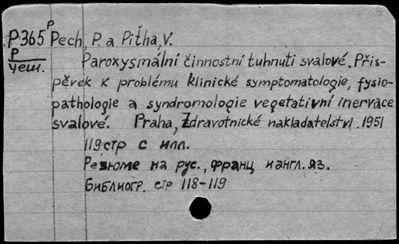 P
P365 Pech, P. a Piťha, V.
P
чеш.
Paroxysmální činnostní tuhnutí svalové. Přís-
pěvek k problému klinické symptomatologie, fysio-
pathologie a syndromologie vegetativní inervace
svalové. Praha, Zdravotnické nakladatelství. 1951
119 стр с илл.
Резюме на рус., франц и англ. яз.
Библиогр. стр 118-119